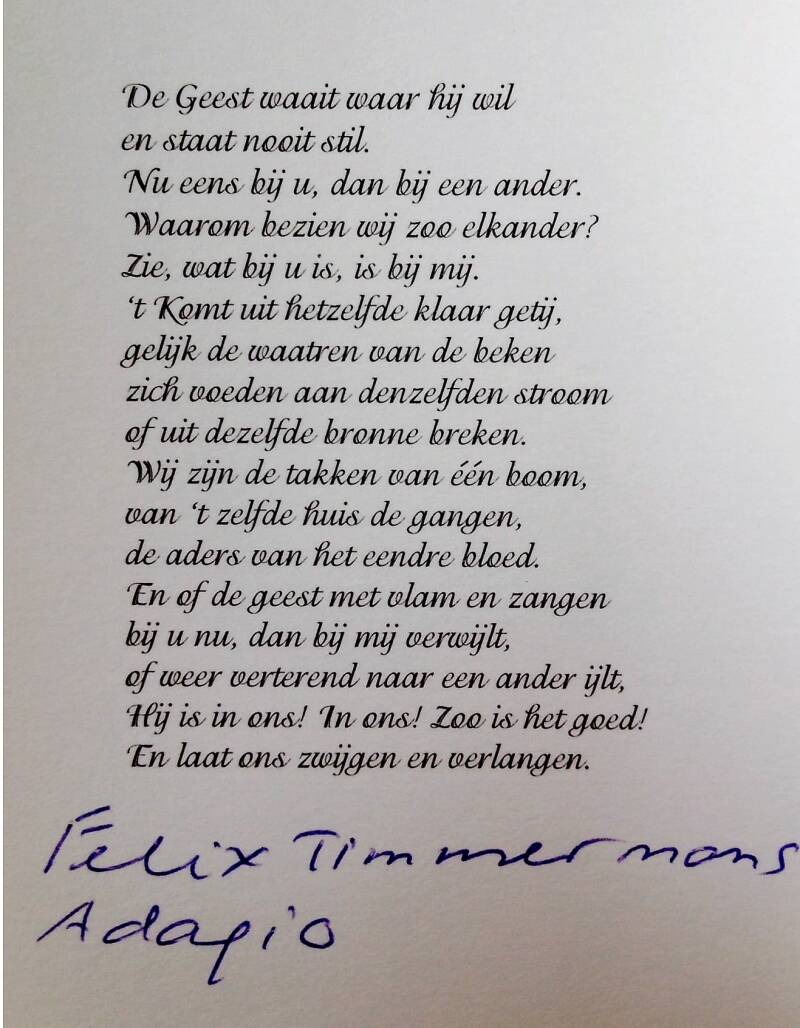 De Geest waait waar hij wil
en staat nooit stil.
Nu eens bij u, dan bij een ander.
Waarom bezien wij zoo elkander?
Zie, wat bij u is, is bij mij.
‘t Komt uit hetzelfde klaar getij,
gelijk de waatren van de beken
zich voeden aan denzelfden stroom
of uit dezelfde bronne breken.
Wij zijn de takken van één boom,
van ‘t zelfde huis de gangen,
de aders van het eendre bloed.
En of de geest met vlam en zangen
bij u nu, dan bij mij verwijlt,
of weer verterend naar een ander ijlt,
Hij is in ons! In ons! Zoo is het goed!
En laat ons zwijgen en verlangen.
Felix Timmermans
Adagio